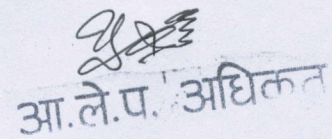 आ.ले.प. अधिकृत